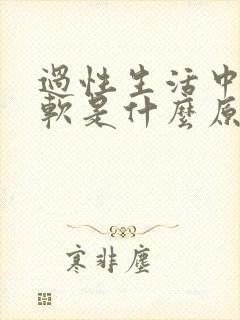 過性生活中
軟是什麼原
寒非塵